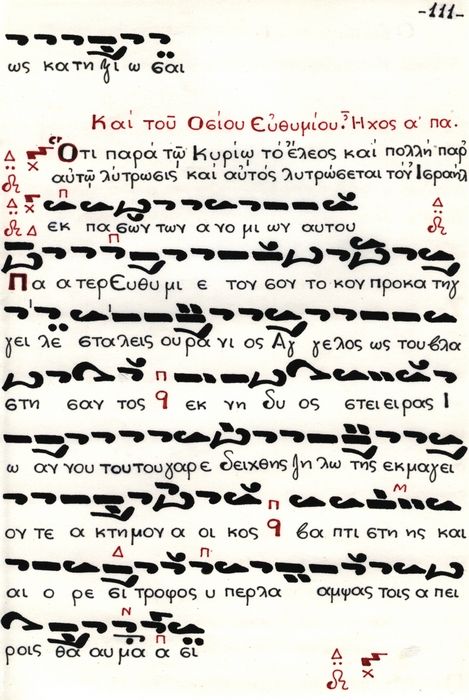 -111-
ως κα τη ξι ω σαι
Καί τοῦ Οσίου Εὐθυμίου. Ἦχος α' πα.
Ὅτι παρά τῷ Κυρίῳ τό ἔλεος καί πολλή παρ'
αὐτῷ λύτρωσις καί αὐτός λυτρώσεται τόν Ισραήλ
εκ πα σων των α νο μι ων αυτου
Πα α τερ Ευθυ μι ε του σου το κου προκα τηγ
γει λε σταλεις ου ρα νι ος Αγ γελος ως του βλα
στη σαν τος q εκ νη δυ ος στει ειρας Ι
ω αν νου του του γαρ ε δειχθης ζη λω της εκ μαγει
ον τε α κτη μον α οι κος q βα πτι στη ης και
αι ο ρε σι τροφος υ περλα αμψας τοις α πει
ροις θα αυ μα α σι